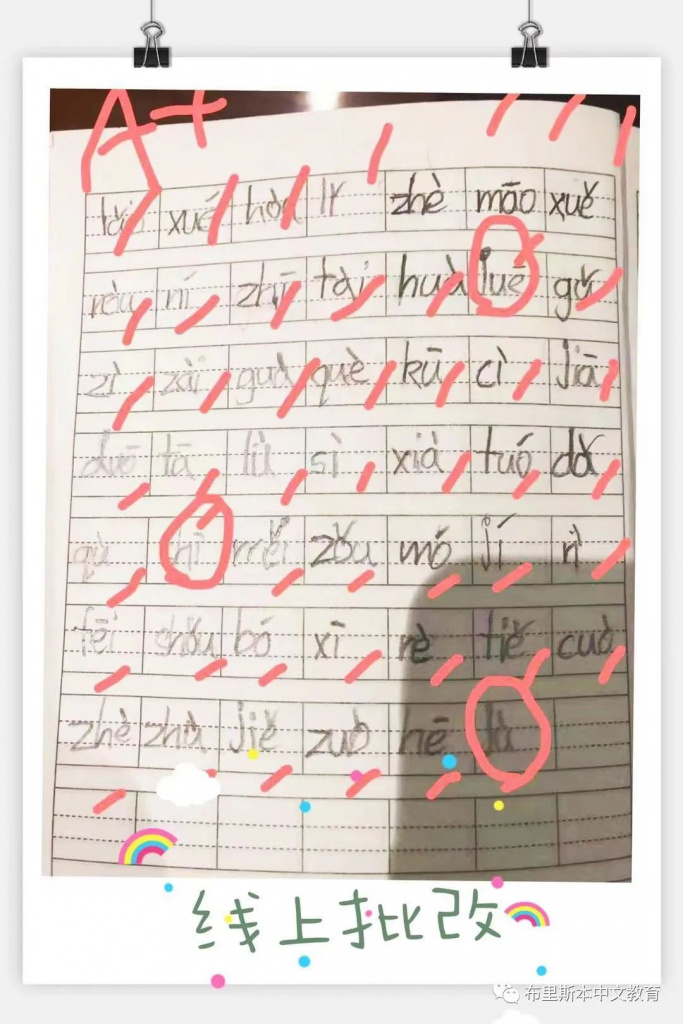 A+
xué hòu lǐ zhè māo xuě
ròu ní zhī tài huà juē gǔ
zì zài guò què kū cì jiā
duō tā lù sì xià tuó dǎ
qù chī měi zǒu mó jí rì
fēi shǒu bó xī rè tiě cuò
zhè zhù jiě zuò hē là
线上批改
布里斯本中文教育